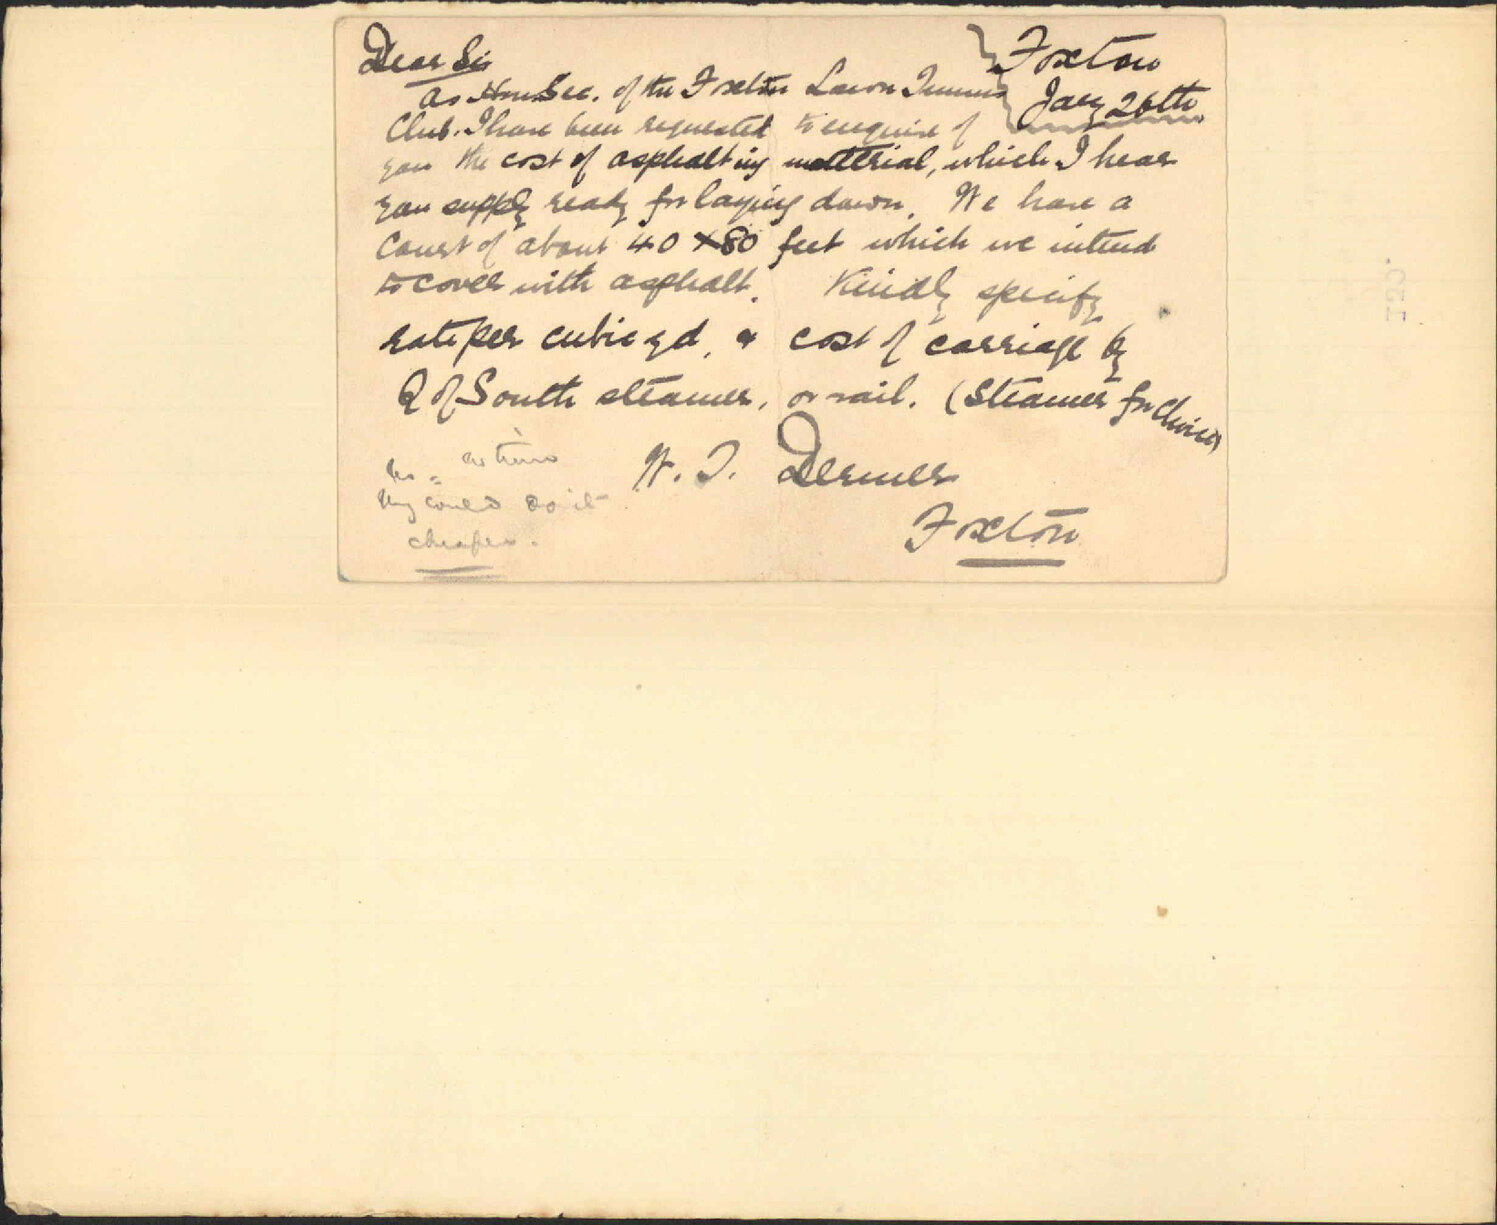 Foxton
Jany 26th
Dear Sir
As Hon. Sec. of the Foxton Lawn Tennis
Club. I have been requested to enquire of
you the cost of asphalting material, which I hear
you supply ready for laying down. We have a
court of about 40 x 80 feet which we intend
to cover with asphalt. Kindly specify
rate per cubic yd, & cost of carriage by
Q of South steamer, or rail. (Steamer for choice)
W. T. Dermer
Foxton
they could do it
cheaper.